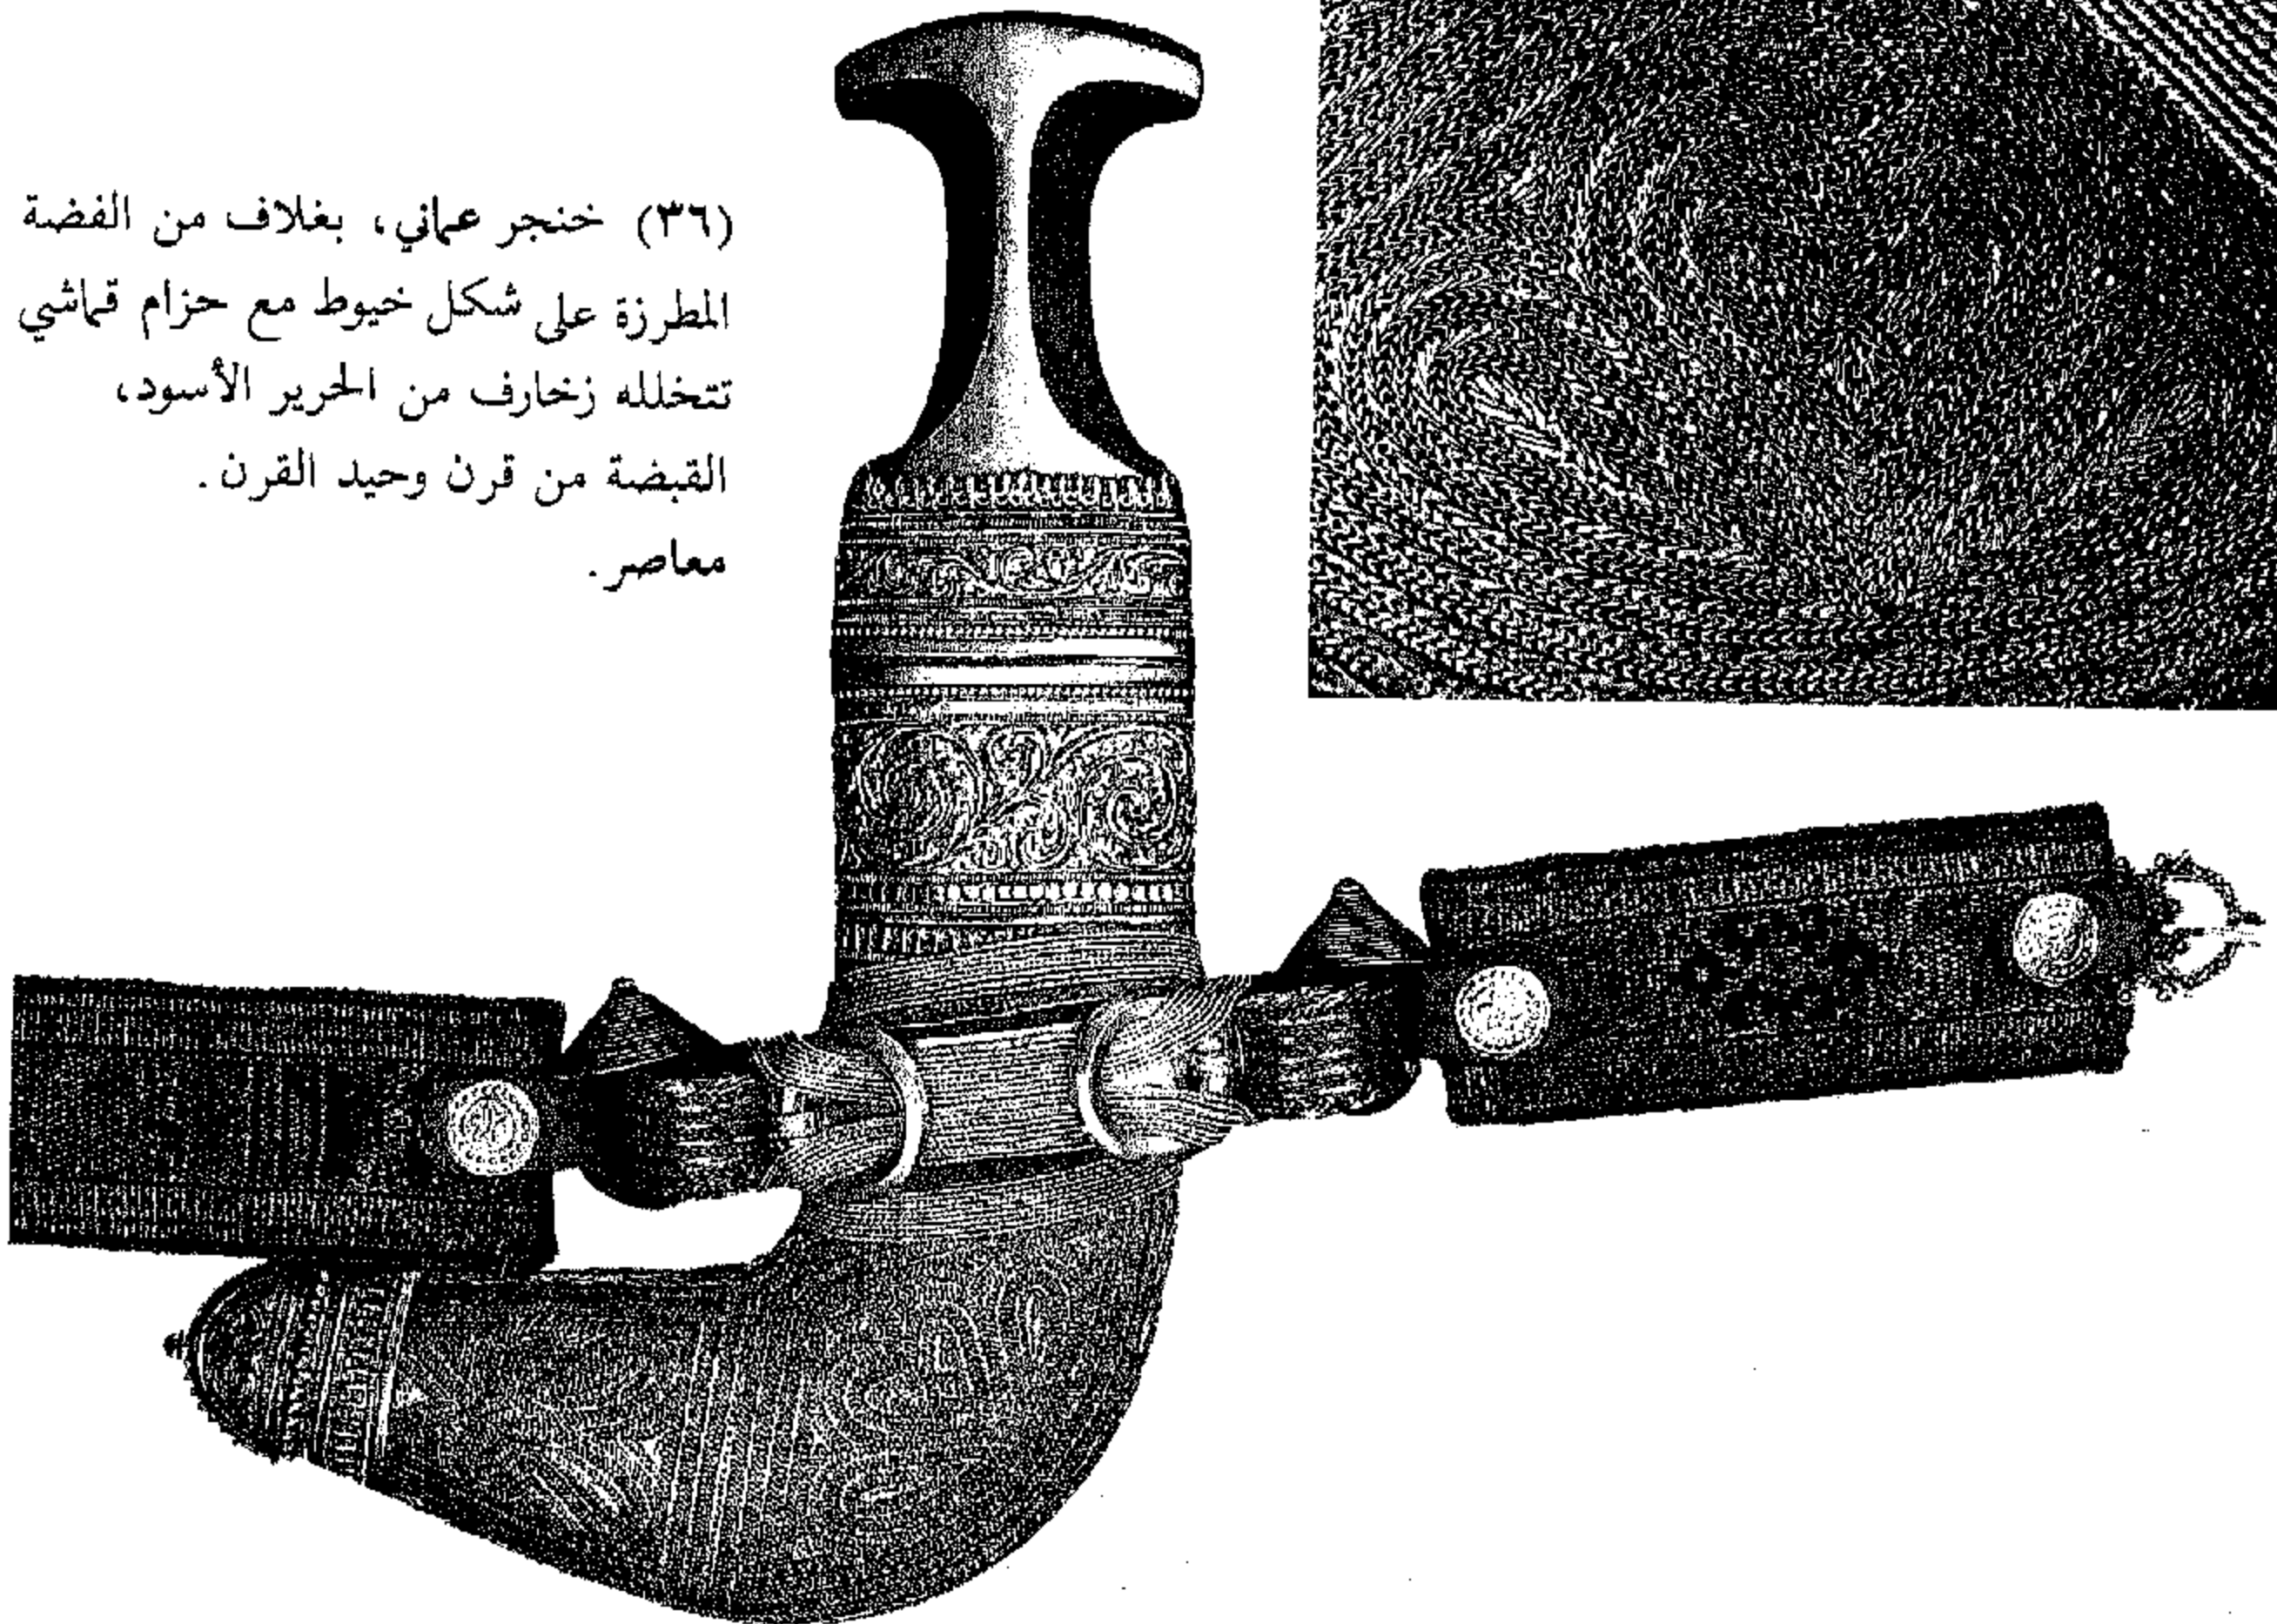 (٣٦) خنجر عماني، بغلاف من الفضة
المطرزة على شكل خيوط مع حزام قماشي
تتخلله زخارف من الحرير الأسود،
القبضة من قرن وحيد القرن.
معاصر.